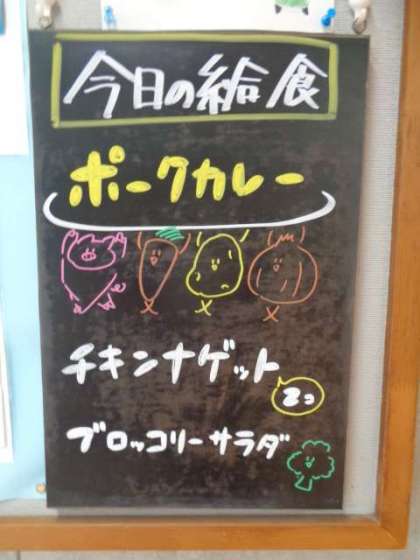 今日の給食
ポークカレー
チキンナゲット
2コ
ブロッコリーサラダ